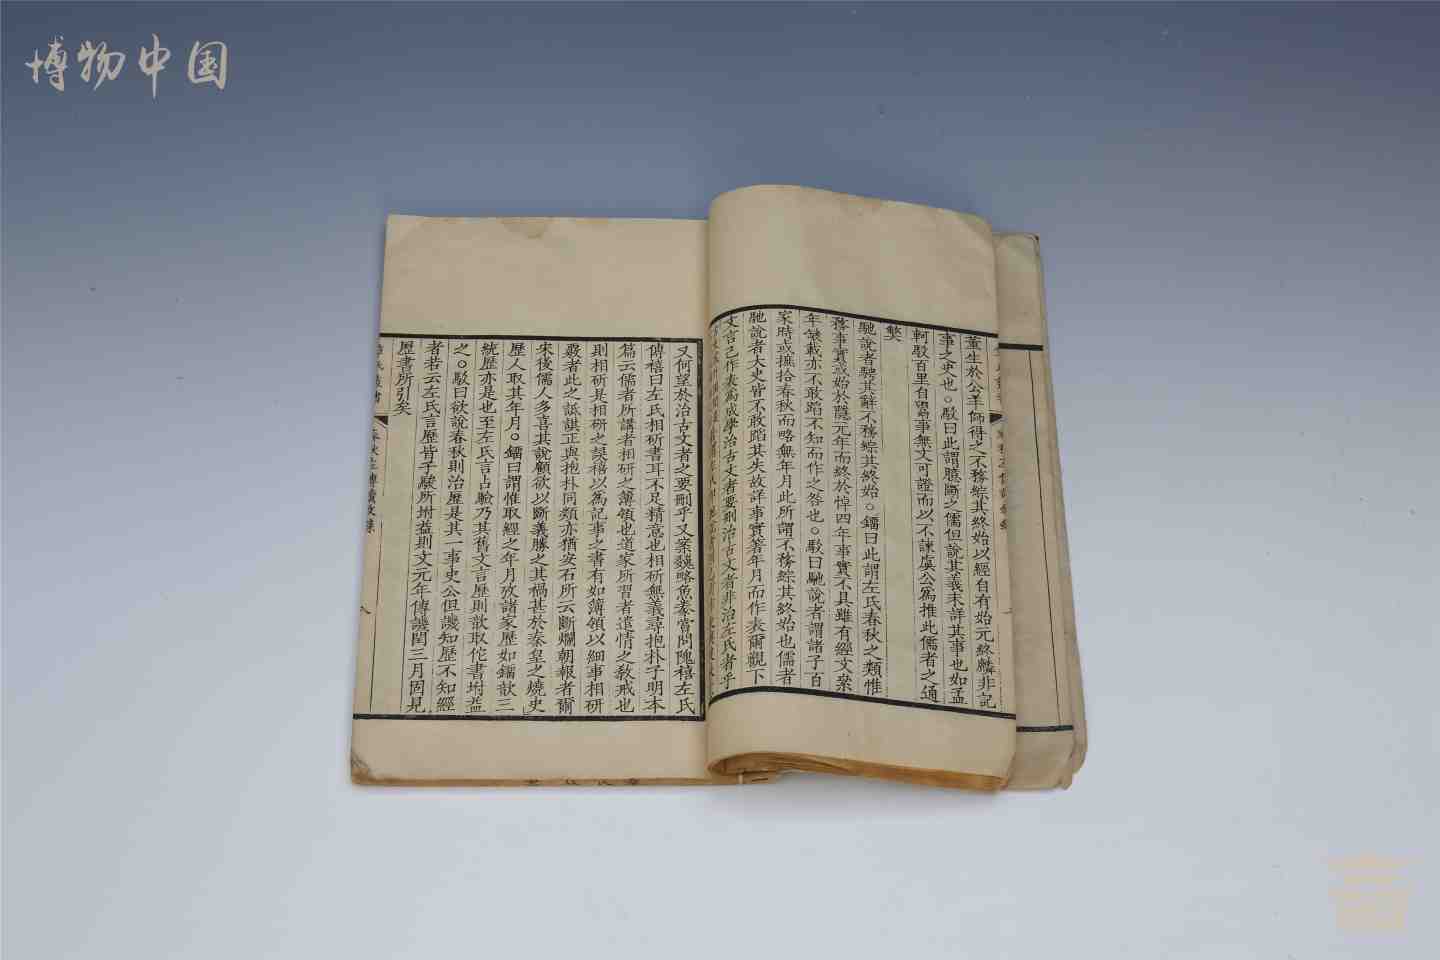 博物中国
董生於公羊師得之不務綜其終始以經自有始元終麟非記
事之史也。駁曰此謂臆斷之儒但說其義未詳其事也如孟
軻駁百里自鬻事無文可證而以不諫虞公爲推此儒者之通
弊
馳說者騁其辭不務綜其終始。鐂曰此謂左氏春秋之類惟
務事實或始於隱元年而終於悼四年事實不具雖有經文案
年竝載亦不敢蹈不知而作之咎也。駁曰馳說者謂諸子百
家時或摭拾春秋而略無年月此所謂不務綜其終始也儒者
馳說者大史皆不敢蹈其失故詳事實著年月而作表爾觀下
文言已作表爲成學治古文者要刪治古文者非治左氏者乎
又何望於治古文者之要刪乎又案魏略魚豢嘗問隗禧左氏
傳禧曰左氏相斫書耳不足精意也相斫無義尋抱朴子明本
篇云儒者所講者相研之簿領也道家所習者遣情之教戒也
則相斫是相研之誤禧以爲記事之書有如簿領以細事相研
覈者此之詆諆正與抱朴同類亦猶安石所云斷爛朝報者爾
宋後儒人多喜其說顧欲以斷義勝之其禍甚於秦皇之燒史
歷人取其年月。鐂曰謂惟取經之年月攷諸家歷如鐂歆三
統歷亦是也至左氏言占驗乃其舊文言歷則歆取佗書坿益
之。駁曰欲說春秋則治歷是其一事史公但譏知歷不知經
者若云左氏言歷皆子駿所坿益則文元年傳譏閏三月固見
歷書所引矣
春秋左傳讀敘錄
八